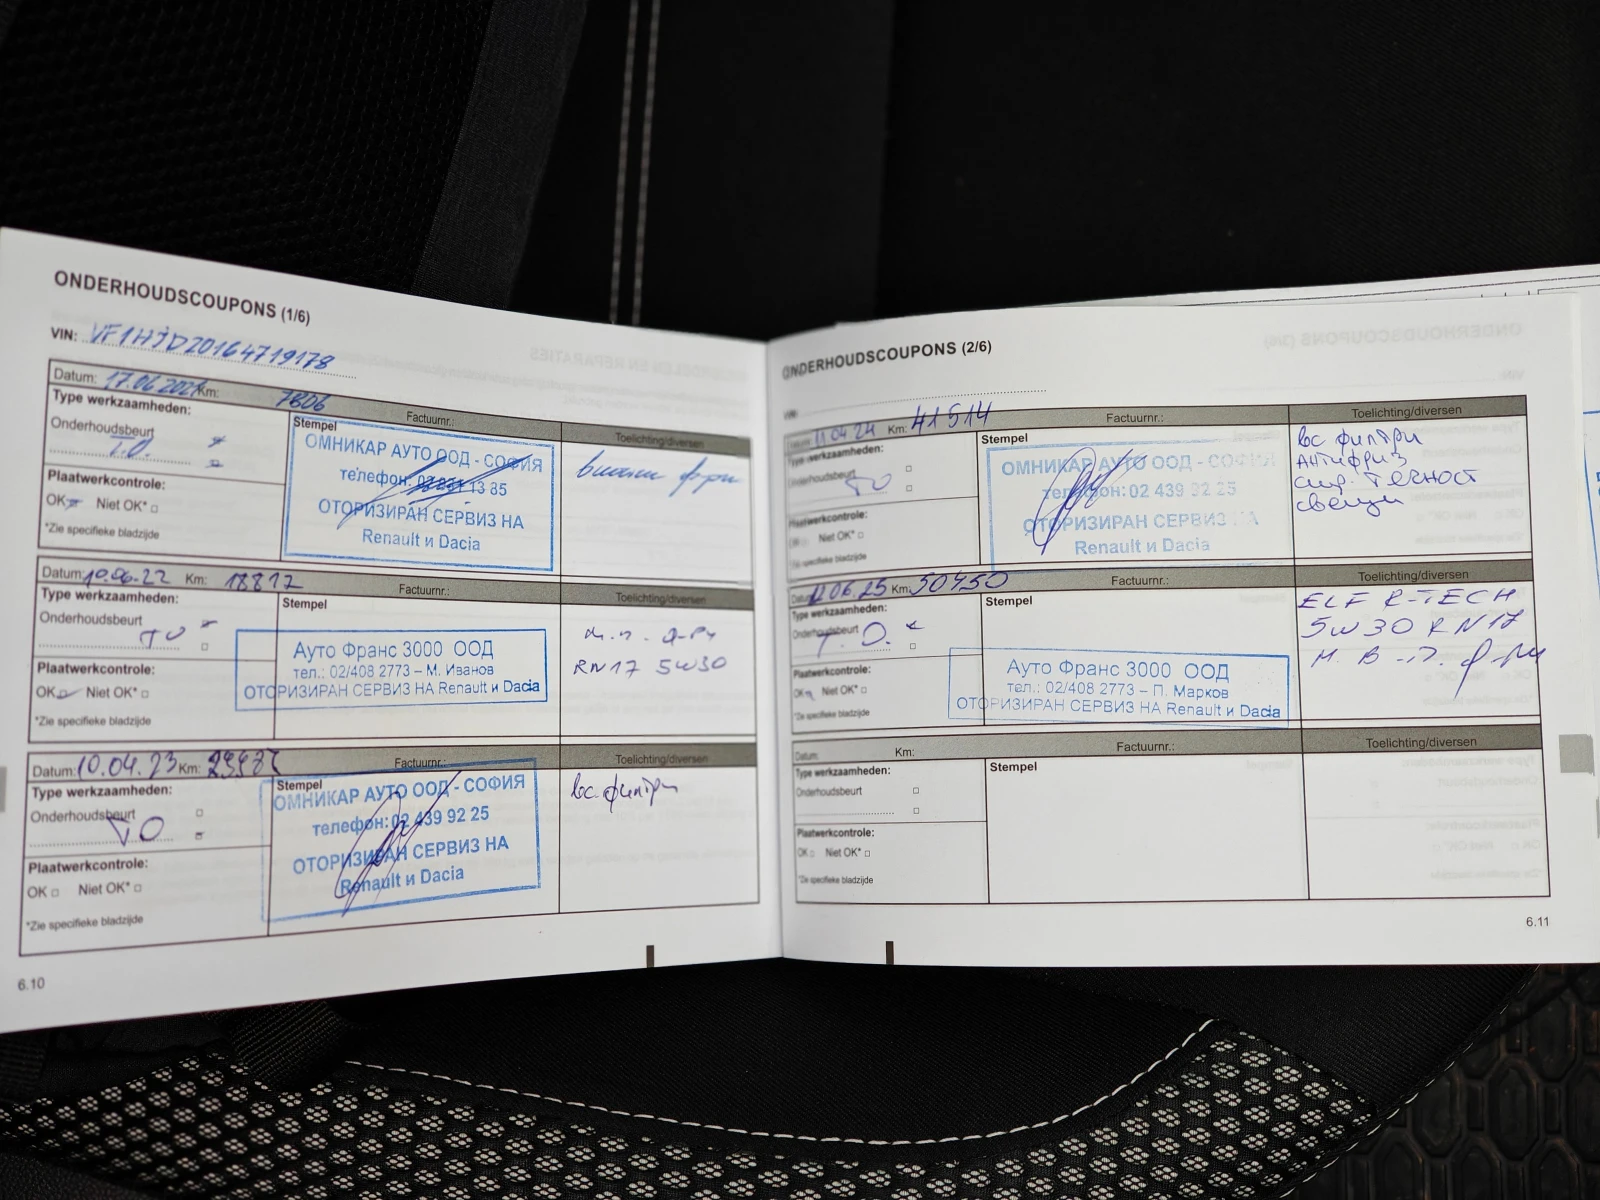 ONDERHOUDSCOUPONS (1/6)
VIN: VF1HJD20164719178
Datum: 17.06.2021 Km: 7806 Factuurnr.:
Type werkzaamheden:
Onderhoudsbeurt
T.O.
Plaatwerkcontrole:
OK Niet OK*
*Zie specifieke bladzijde
Stempel
ОМНИКАР АУТО ООД - СОФИЯ
телефон: 13 85
ОТОРИЗИРАН СЕРВИЗ НА
Renault и Dacia
Toelichting/diversen
Datum: 10.06.22 Km: 18812 Factuurnr.:
Type werkzaamheden:
Onderhoudsbeurt
TO
Plaatwerkcontrole:
OK Niet OK*
*Zie specifieke bladzijde
Stempel
Ауто Франс 3000 ООД
тел.: 02/408 2773 – М. Иванов
ОТОРИЗИРАН СЕРВИЗ НА Renault и Dacia
Toelichting/diversen
RN17 5W30
Datum: 10.04.23 Km: Factuurnr.:
Type werkzaamheden:
Onderhoudsbeurt
TO
Plaatwerkcontrole:
OK Niet OK*
*Zie specifieke bladzijde
Stempel
ОМНИКАР АУТО ООД - СОФИЯ
телефон: 02 439 92 25
ОТОРИЗИРАН СЕРВИЗ НА
Renault и Dacia
Toelichting/diversen
вс. филтри
6.10
ONDERHOUDSCOUPONS (2/6)
VIN:
Datum: 11.04.24 Km: 41514 Factuurnr.:
Type werkzaamheden:
Onderhoudsbeurt
TO
Plaatwerkcontrole:
OK Niet OK*
*Zie specifieke bladzijde
Stempel
ОМНИКАР АУТО ООД - СОФИЯ
телефон: 02 439 92 25
ОТОРИЗИРАН СЕРВИЗ НА
Renault и Dacia
Toelichting/diversen
вс филтри
Антифриз
спир. Течност
свещи
Datum: 11.06.25 Km: 50450 Factuurnr.:
Type werkzaamheden:
Onderhoudsbeurt
T.O.
Plaatwerkcontrole:
OK Niet OK*
*Zie specifieke bladzijde
Stempel
Ауто Франс 3000 ООД
тел.: 02/408 2773 – П. Марков
ОТОРИЗИРАН СЕРВИЗ НА Renault и Dacia
Toelichting/diversen
ELF R-TECH
5W30 RN17
М. В. П. ф-ри
Datum: Km: Factuurnr.:
Type werkzaamheden:
Onderhoudsbeurt
Plaatwerkcontrole:
OK Niet OK*
*Zie specifieke bladzijde
Stempel
Toelichting/diversen
6.11